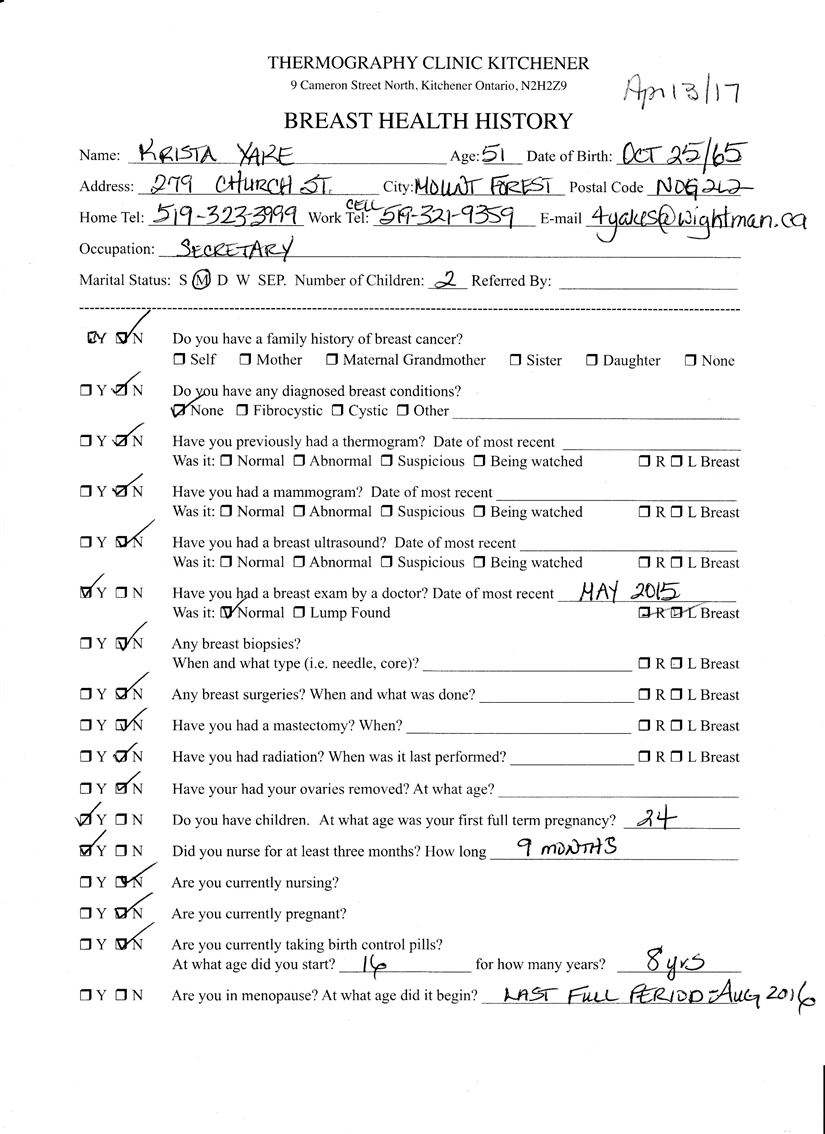 THERMOGRAPHY CLINIC KITCHENER
9 Cameron Street North, Kitchener Ontario, N2H2Z9
Apr 13/17
BREAST HEALTH HISTORY
Name: KRISTA YAKE Age: 51 Date of Birth: OCT 25/65
Address: 279 CHURCH ST. City: MOUNT FOREST Postal Code N0G 2L2
Home Tel: 519-323-3999 Work Tel: CELL 519-321-9359 E-mail 4yakes@wightman.ca
Occupation: SECRETARY
Marital Status: S M D W SEP. Number of Children: 2 Referred By:
☑ Y ☑ N Do you have a family history of breast cancer?
☐ Self ☐ Mother ☐ Maternal Grandmother ☐ Sister ☐ Daughter ☐ None
☐ Y ☑ N Do you have any diagnosed breast conditions?
☑ None ☐ Fibrocystic ☐ Cystic ☐ Other
☐ Y ☑ N Have you previously had a thermogram? Date of most recent
Was it: ☐ Normal ☐ Abnormal ☐ Suspicious ☐ Being watched ☐ R ☐ L Breast
☐ Y ☑ N Have you had a mammogram? Date of most recent
Was it: ☐ Normal ☐ Abnormal ☐ Suspicious ☐ Being watched ☐ R ☐ L Breast
☐ Y ☑ N Have you had a breast ultrasound? Date of most recent
Was it: ☐ Normal ☐ Abnormal ☐ Suspicious ☐ Being watched ☐ R ☐ L Breast
☑ Y ☐ N Have you had a breast exam by a doctor? Date of most recent MAY 2015
Was it: ☑ Normal ☐ Lump Found ☐ R ☐ L Breast
☐ Y ☑ N Any breast biopsies?
When and what type (i.e. needle, core)? ☐ R ☐ L Breast
☐ Y ☑ N Any breast surgeries? When and what was done? ☐ R ☐ L Breast
☐ Y ☑ N Have you had a mastectomy? When? ☐ R ☐ L Breast
☐ Y ☑ N Have you had radiation? When was it last performed? ☐ R ☐ L Breast
☐ Y ☑ N Have your had your ovaries removed? At what age?
☑ Y ☐ N Do you have children. At what age was your first full term pregnancy? 24
☑ Y ☐ N Did you nurse for at least three months? How long 9 MONTHS
☐ Y ☑ N Are you currently nursing?
☐ Y ☑ N Are you currently pregnant?
☐ Y ☑ N Are you currently taking birth control pills?
At what age did you start? 16 for how many years? 8 yrs
☐ Y ☐ N Are you in menopause? At what age did it begin? LAST FULL PERIOD - AUG 2016